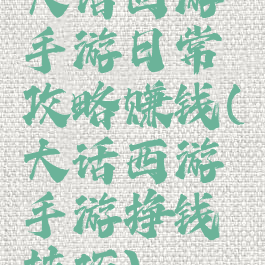 大话西游
手游日常
攻略赚钱(
大话西游
手游挣钱
技巧)